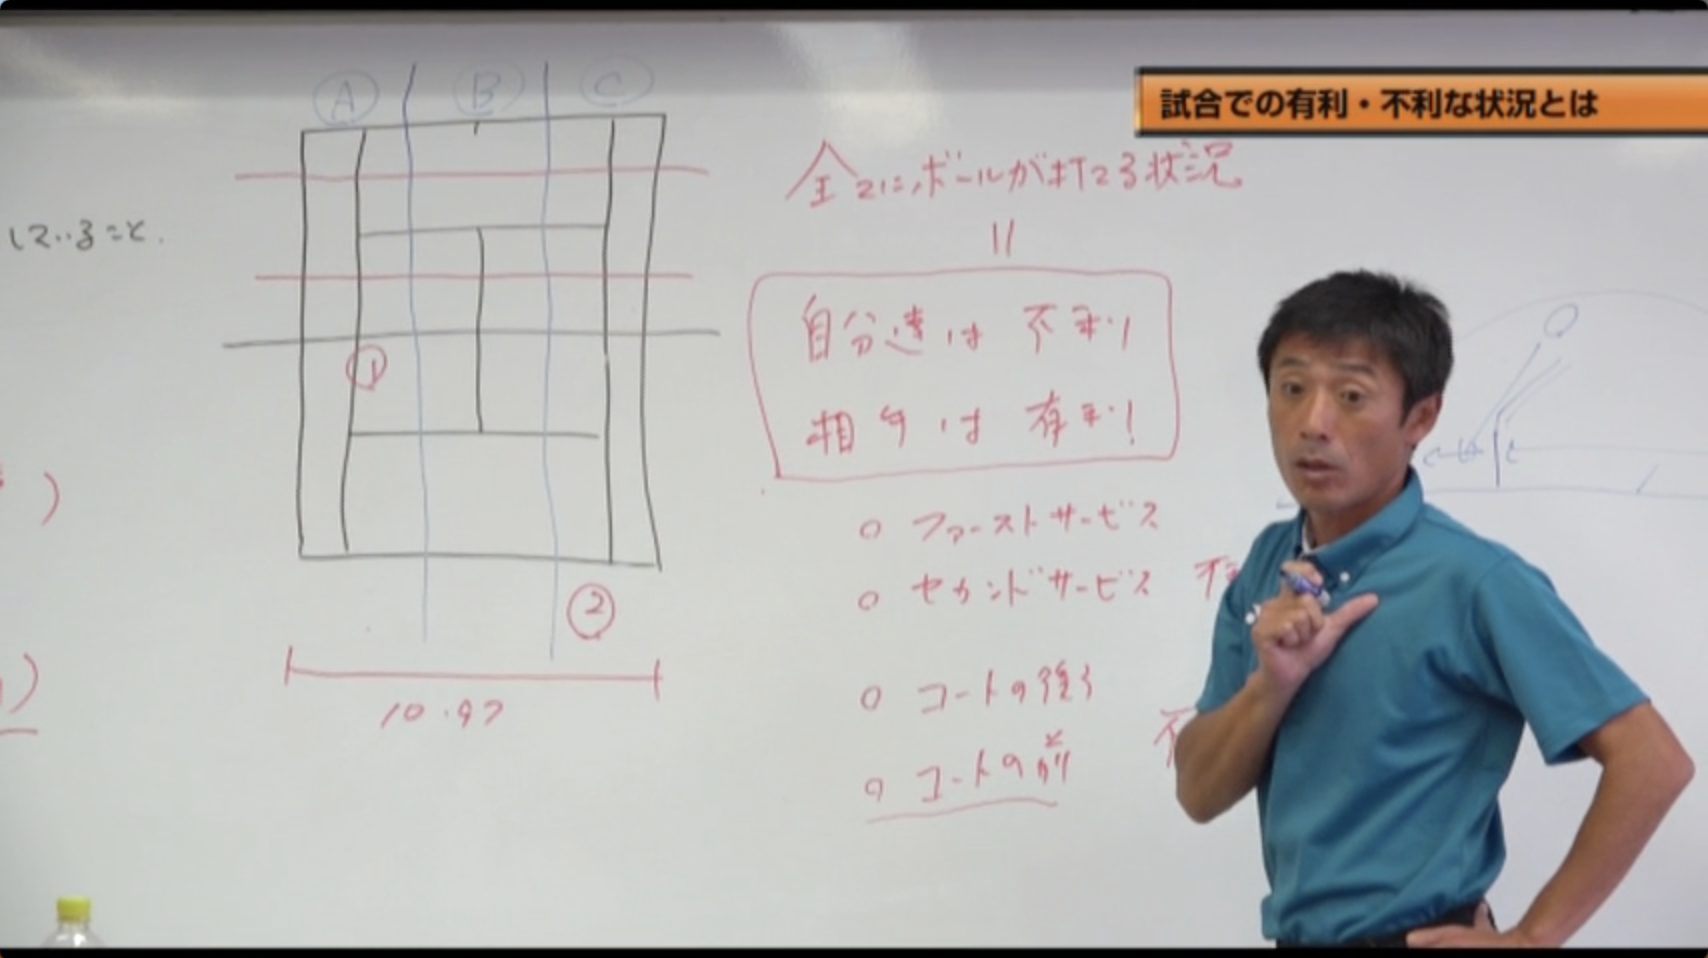 試合での有利・不利な状況とは
A B C
全てにボールが打てる状況
していること.
||
自分達は 不利
相手は 有利
①
ファーストサービス
セカンドサービス 不
②
コートの後ろ
10.97
コートの前